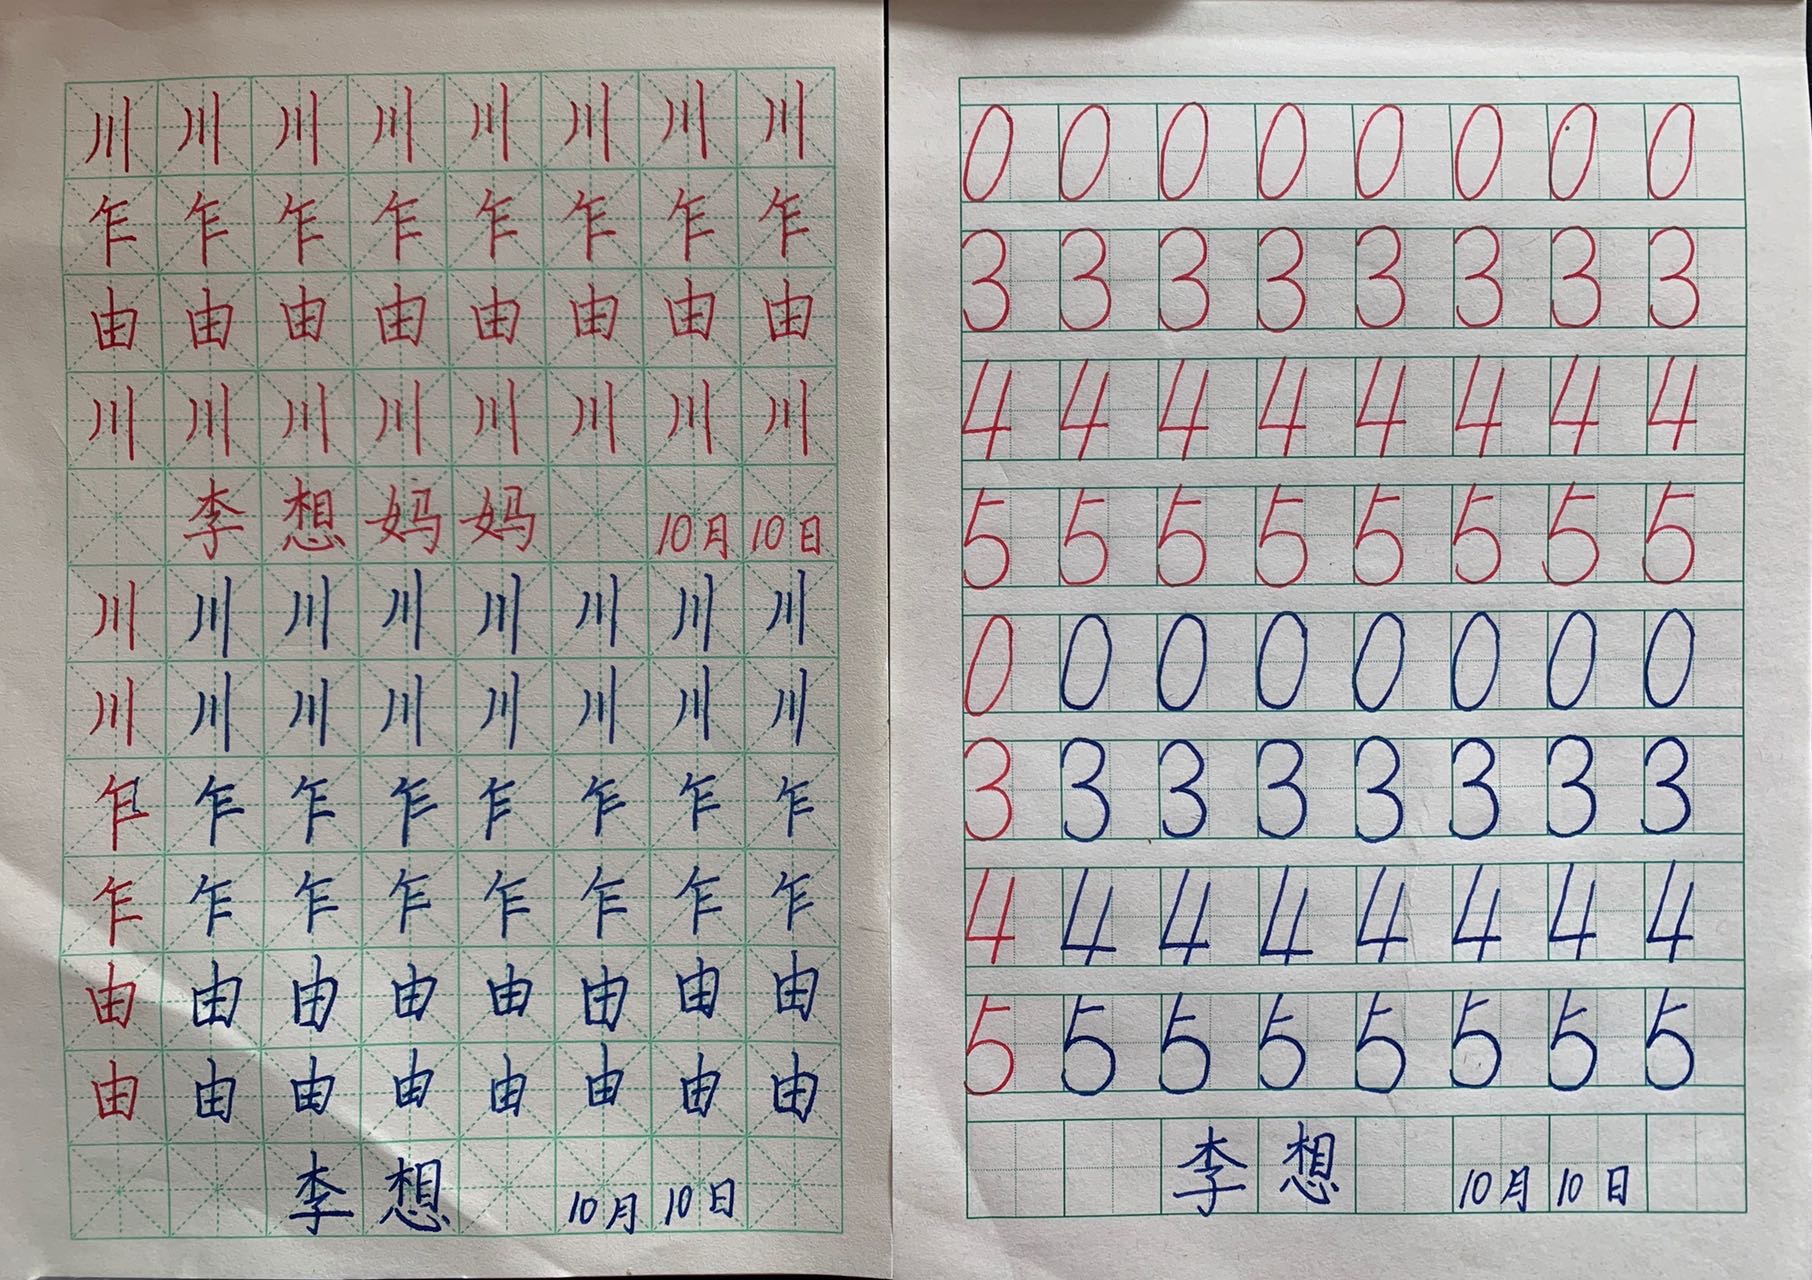 川川川川川川川川
乍乍乍乍乍乍乍乍
由由由由由由由由
川川川川川川川川
李想妈妈 10月10日
川川川川川川川川
川川川川川川川川
乍乍乍乍乍乍乍乍
乍乍乍乍乍乍乍乍
由由由由由由由由
由由由由由由由由
李想 10月10日
0 0 0 0 0 0 0 0
3 3 3 3 3 3 3 3
4 4 4 4 4 4 4 4
5 5 5 5 5 5 5 5
0 0 0 0 0 0 0 0
3 3 3 3 3 3 3 3
4 4 4 4 4 4 4 4
5 5 5 5 5 5 5 5
李想 10月10日